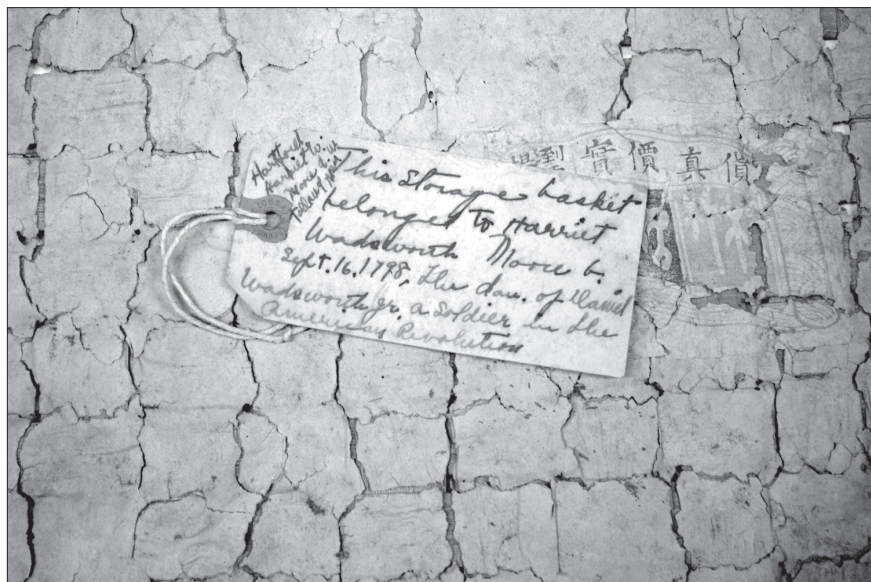 Hartford
Harriet W.
Moore
This Storage basket
belonged to Harriet
Wadsworth Moore b.
Sept. 16. 1798, the dau. of Daniel
Wadsworth Jr. a Soldier in the
American Revolution
貨真價實到